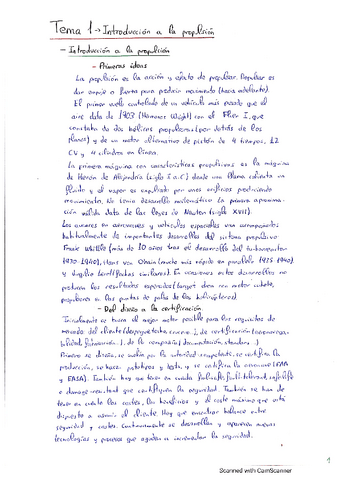 Tema 1 → Introducción a la propulsión
- Introducción a la propulsión
- Primeras ideas
La propulsión es la acción y efecto de propulsar. Propulsar es
dar empuje o fuerza para producir movimiento (hacia adelante).
El primer vuelo controlado de un vehículo más pesado que el
aire data de 1903 (Hermanos Wright) con el Flyer I, que
constaba de dos hélices propulsoras (por detrás de los
planos) y de un motor alternativo de pistón de 4 tiempos, 12
CV y 4 cilindros en línea.
La primera máquina con características propulsivas es la máquina
de Herón de Alejandría (siglo I a.C.) donde una llama calienta un
fluido y el vapor es expulsado por unos orificios produciendo
movimiento. No tenía desarrollo matemático. La primera aproxima-
ción válida data de las leyes de Newton (siglo XVII).
Los avances en aeronaves y vehículos espaciales van acompañados
habitualmente de importantes desarrollos del sistema propulsivo
Frank Whittle (más de 10 años tras el desarrollo del turborreactor
1930-1940), Hans von Ohain (mucho más rápido en paralelo 1935-1940)
y Virgilio Leret (fechas similares). En ocasiones estos desarrollos no
producen los resultados esperados (
propulsores a las puntas de palas de los helicópteros).
- Del diseño a la certificación
se busca el mejor motor posible para los requisitos de
mercado, del cliente (despegue
de la compañía (documentación, standars...)
Primero se diseña, se
producción, se hacen prototipos y tests, y se certifica la aeronave (FAA
y EASA). También hay que tener en cuenta
o damage
que certifiquen la seguridad. También se han de
tener en cuenta los costes, los beneficios y el coste máximo que está
dispuesto a asumir el cliente. Hay que encontrar balance entre
seguridad y costes. Continuamente se desarrollan y aparecen nuevas
tecnologías y procesos que ayudan a incrementar la seguridad.
1
Scanned with CamScanner